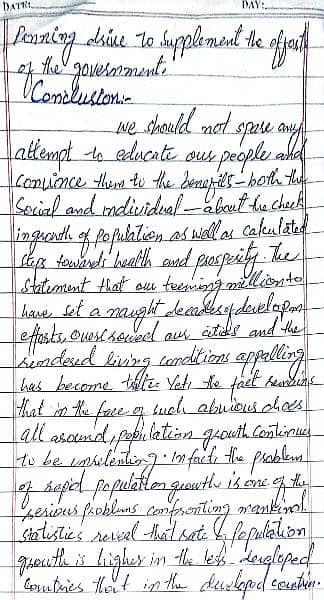 DATE: DAY:
Planning drive to Supplement the effort
of the government.
Conclusion:-
we should not spare any
attempt to educate our people and
convince them to the benefits - both the
Social and individual - about the check
in growth of population as well as calculated
steps towards health and prosperity. The
statement that our teeming million to
have set a naught decades of developm
efforts, our cities and the
rendered living conditions appalling
has become trite. Yet, the fact remains
that in the face of such abvious choes
all around, population growth continues
to be unrelenting. In fact, the problem
of rapid population growth is one of the
serious problems confronting mankind.
statistics reveal that rate of population
growth is higher in the less - developed
countries that in the developed countries.